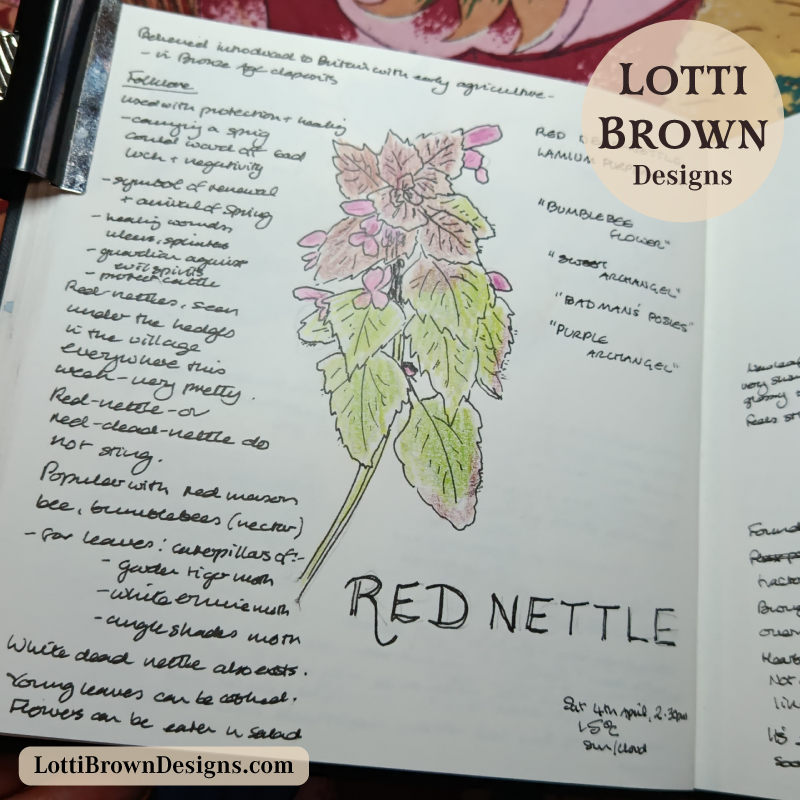 Believed introduced to Britain with early agriculture -
- in Bronze Age deposits
Folklore
used with protection + healing
- carrying a sprig
could ward off bad
luck + negativity
- symbol of renewal
+ arrival of Spring
- healing wounds
ulcers, splinters
- guardian against
evil spirits
- protect cattle
Red-nettles, seen
under the hedges
in the village
everywhere this
week - very pretty.
Red-nettle - or
red-dead-nettle do
not sting.
Popular with red mason
bee, bumblebees (nectar)
- for leaves: caterpillars of:-
- garden tiger moth
- white ermine moth
- angle shades moth
White dead nettle also exists.
Young leaves can be cooked.
Flowers can be eaten in salad
RED
LAMIUM
"BUMBLEBEE
FLOWER"
"SWEET
ARCHANGEL"
"BADMAN'S POSIES"
"PURPLE
ARCHANGEL"
RED NETTLE
Sat 4th April, 2.30pm
15°C
sun/cloud
LOTTI
BROWN
Designs
LottiBrownDesigns.com
very
glossy
feels
Found
over
Not